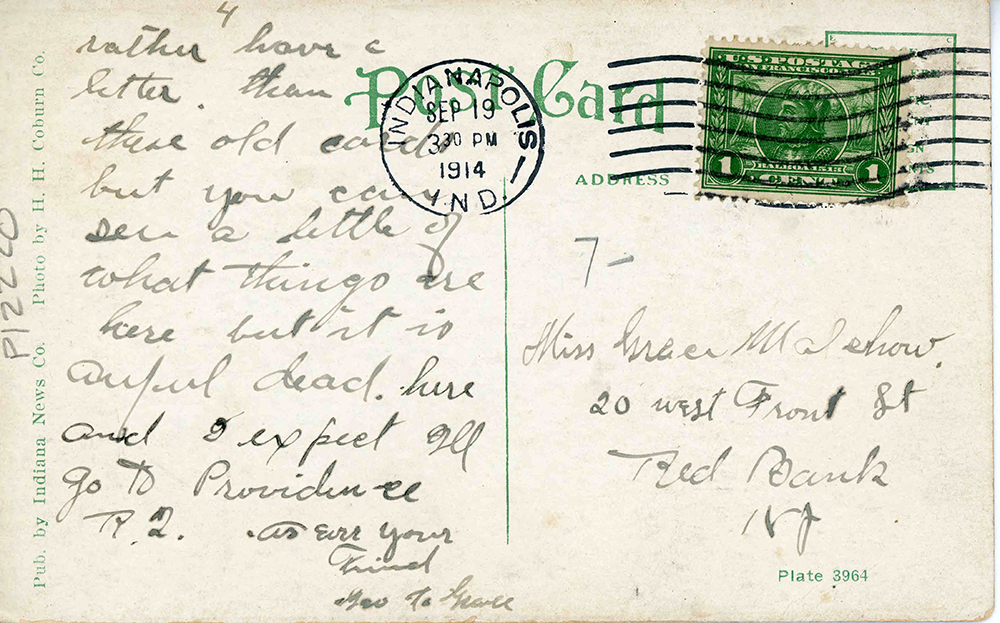 4
rather have a
letter. than
these old cards
but you can
see a little of
what things are
here but it is
awful dead. here
and I expect Ill
go to Providence
R.I. as ever your
Friend
Geo to Grace
Post Card
INDIANAPOLIS
SEP 19
330 PM
1914
IND.
U.S. POSTAGE
SAN FRANCISCO
1 CENT 1
ADDRESS
7-
Miss Grace
20 west Front St
Red Bank
NJ
Plate 3964
Pub. by Indiana News Co. Photo by H. H. Coburn Co.
P12220